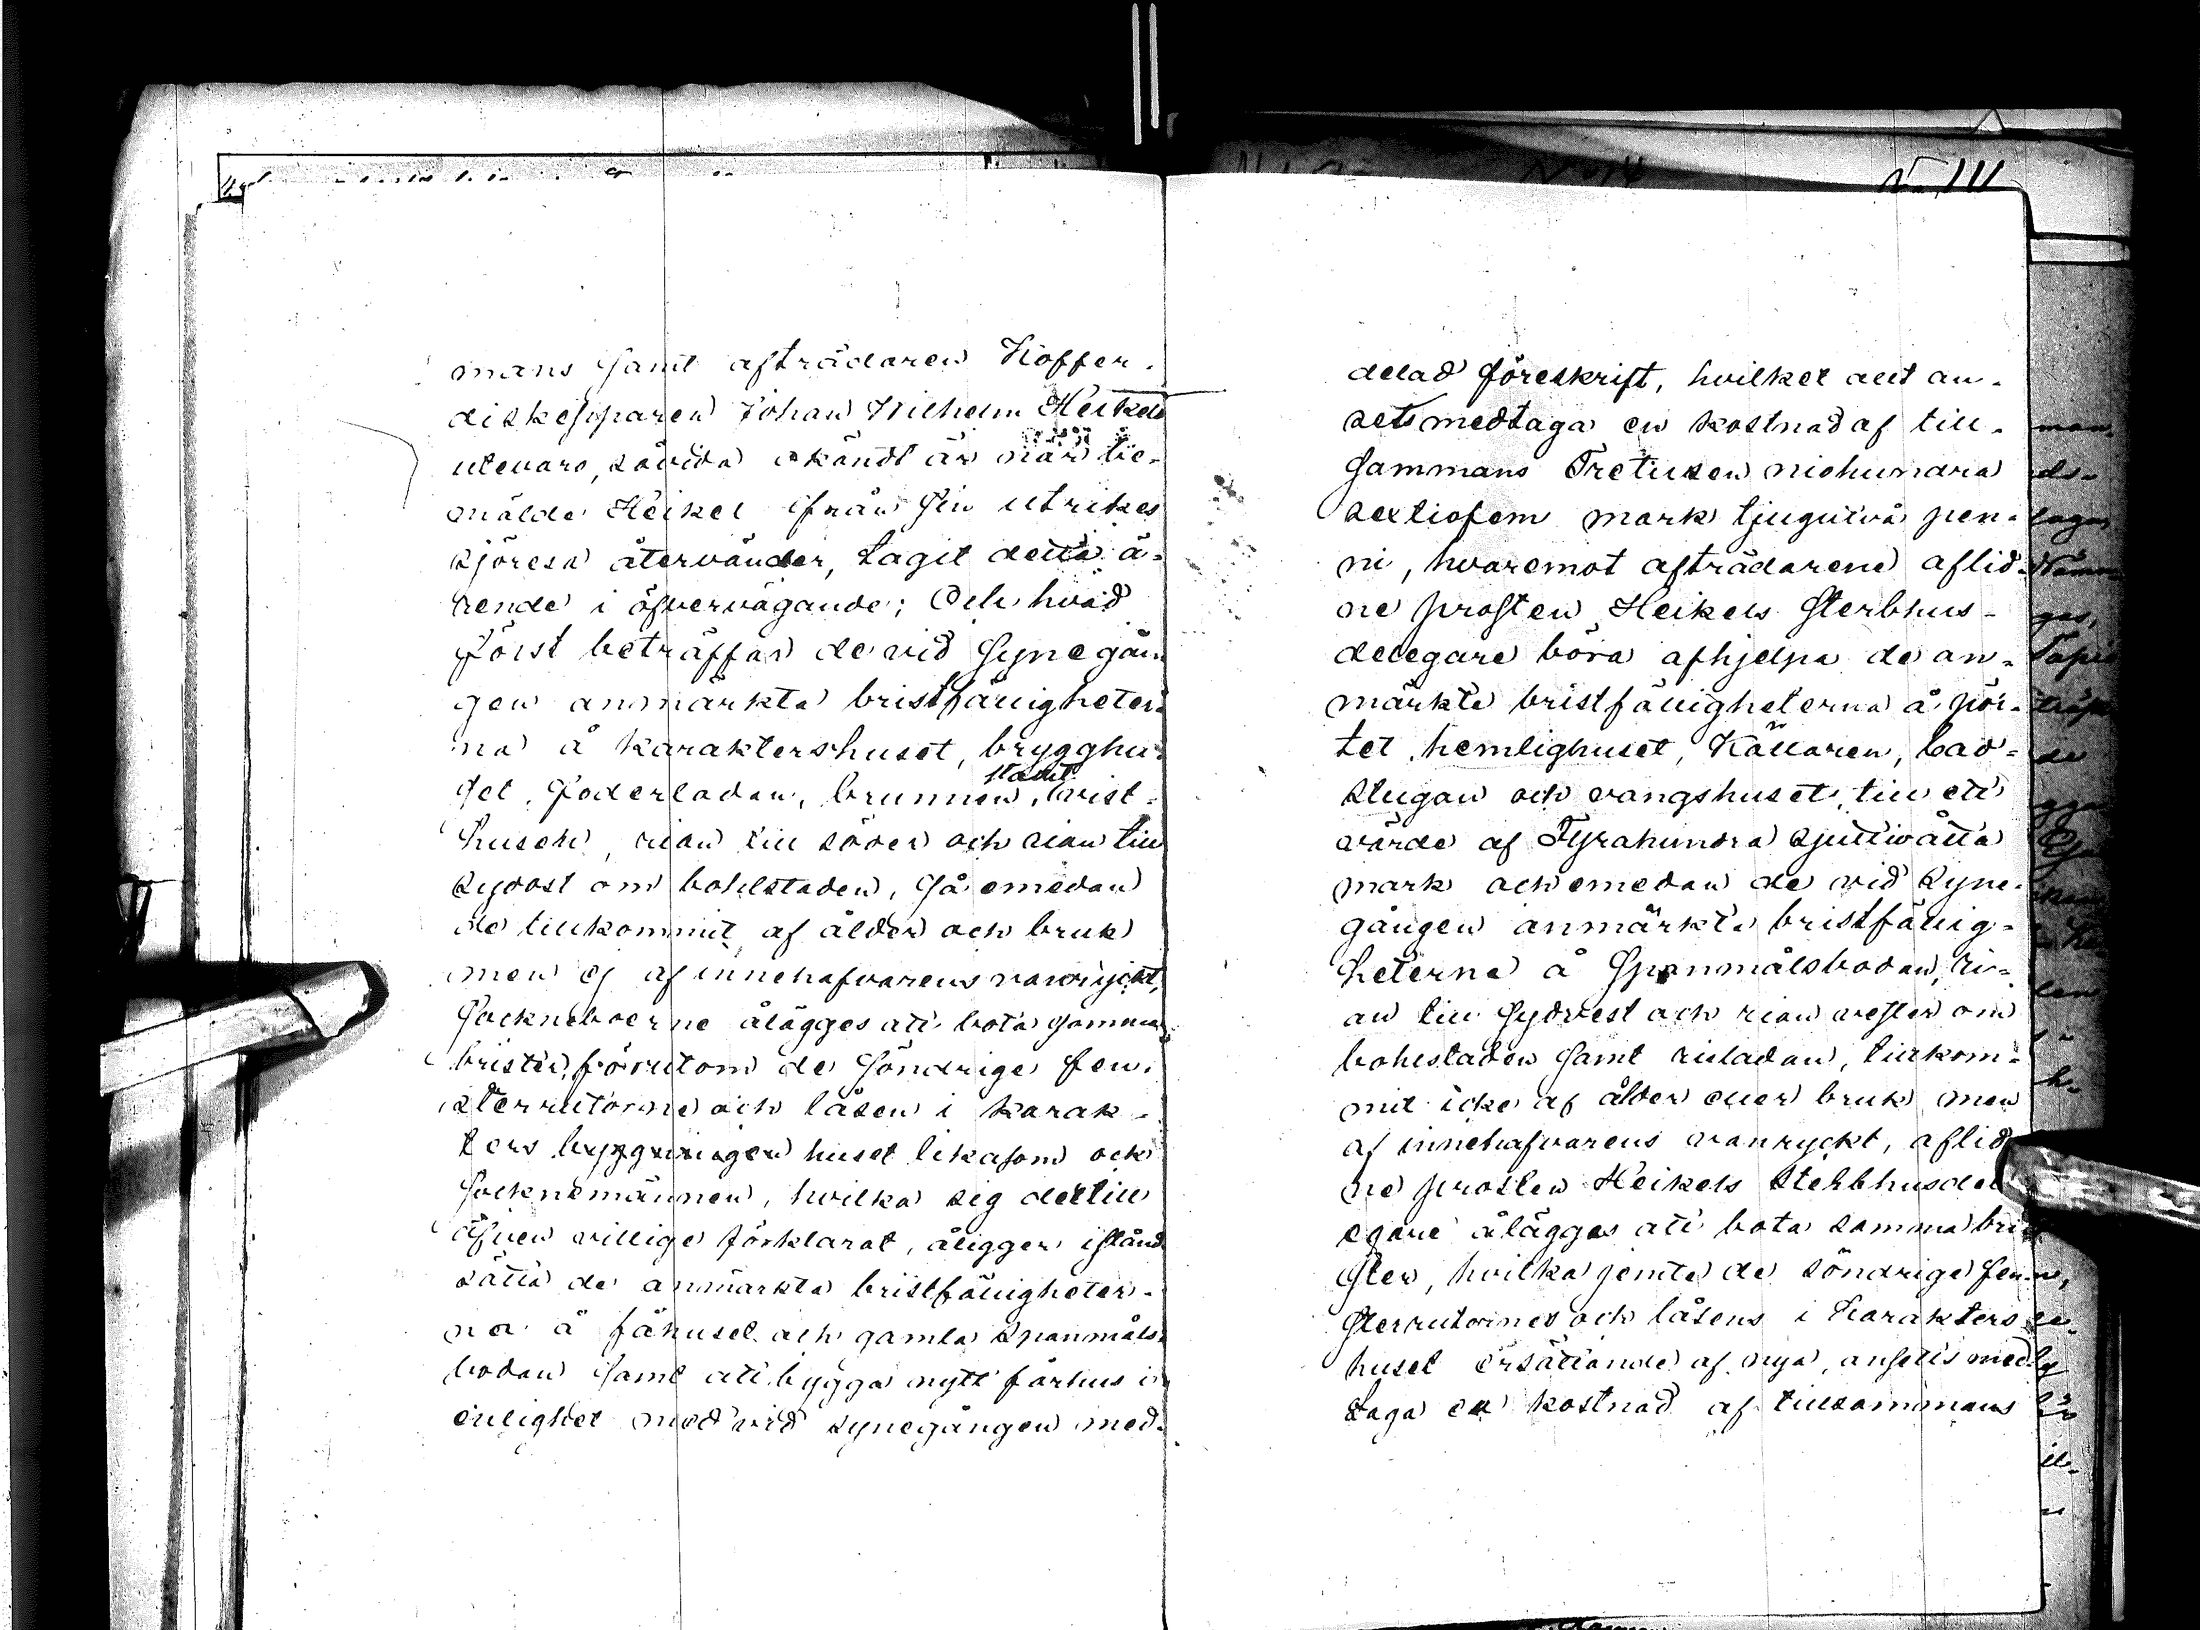 mans samt afträdaren Koffer-
diskepparen Johan Wilhelm Heikels
utevaro, såvida okändt är när be-
mälde Heikel ifrån sin utrikes
sjöresa återvänder, tagit detta ä-
rende i öfvervägande; Och hvad
först beträffar de vid synegån-
gen anmärkta bristfälligheter-
na å karaktershuset, brygghu-
set, foderladan, brunnen, stall
husen, rian till söder och rian till
sydost om bohlstaden, så emedan
de tillkommit af ålder och bruk
men ej af innehafvarens vanryckt,
Sockneboerne ålägges att bota samma
brister, förutom de söndrige fen-
sterrutorne och låsen i karak-
ters byggningen huset likasom ock
socknemännen, hvilka sig dertill
äfven villige förklarat, åligger istånd
sätta de anmärkta bristfälligheter-
na å fähuset och gamla spanmåls-
bodan samt att bygga nytt fårhus i
enlighet med vid synegången med-
No 111
delad föreskrift, hvilket allt an-
setts medtaga en kostnad af till-
sammans Tretusen niohundra
sextiofem mark tjugutvå pen-
ni, hvaremot afträdarene aflid-
ne prosten Heikels sterbhus-
delegare böra afhjelpa de an-
märkta bristfälligheterna å pör-
tet, hemlighuset, Källaren, bad-
stugan och vångshuset till ett
värde af Fyrahundra sjuttioåtta
mark och emedan de vid syne-
gången anmärkta bristfällig-
heterna å spanmålsbodan, ri-
an till sydvest och rian vester om
bohlstaden samt riladan, tillkom-
mit icke af ålder eller bruk men
af innehafvarens vanryckt, aflid
ne prosten Heikels Sterbhusdel
egare ålägges att bota samma bri
ster, hvilka jemte de söndrige fen-
sterrutornes och låsens i karakters
huset ersättande af nya, ansetts med
taga en kostnad af tillsammans